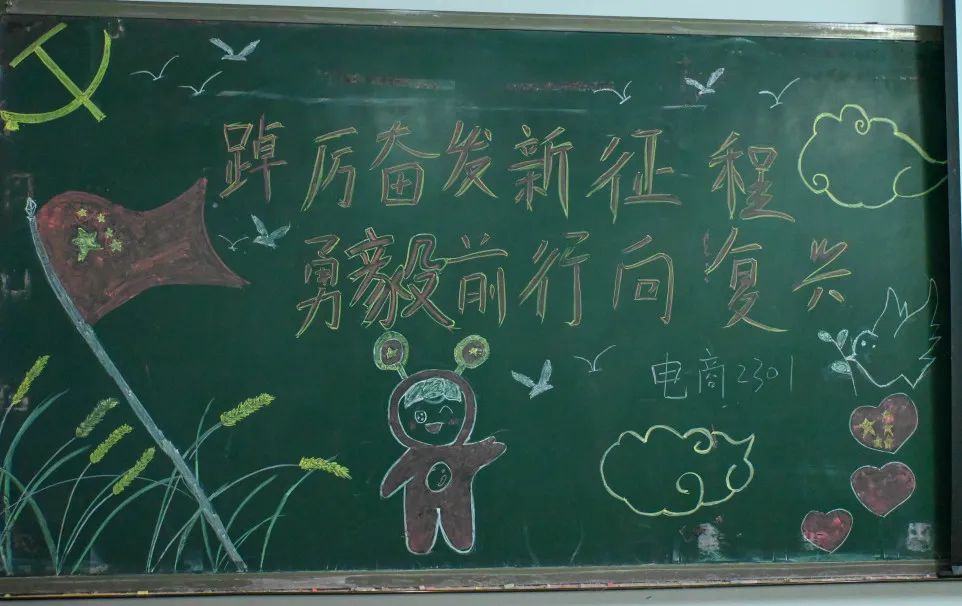 踔厉奋发新征程
勇毅前行向复兴
电商2301